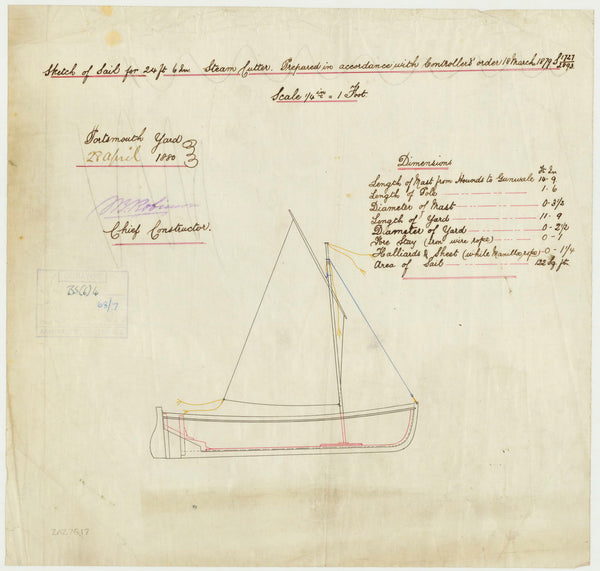 Sketch of Sail for 24 ft 6 In Steam Cutter. Prepared in accordance with Controller's order 18 March 1879 S 1727/5893
Scale 1/4 ins = 1 Foot.
Portsmouth Yard
28 April 1880
Chief Constructor.
Dimensions
Ft In
Length of Mast from Hounds to Gunwale 14 - 9
Length of Pole 1 . 6
Diameter of Mast 0 - 3 1/2
Length of Yard 11 . 9
Diameter of Yard 0 - 2 1/2
Fore Stay (Iron wire rope) 0 - 1
Halliards & Sheet (White Manilla rope) 0 - 1 1/4
Area of Sail 122 Sq ft.